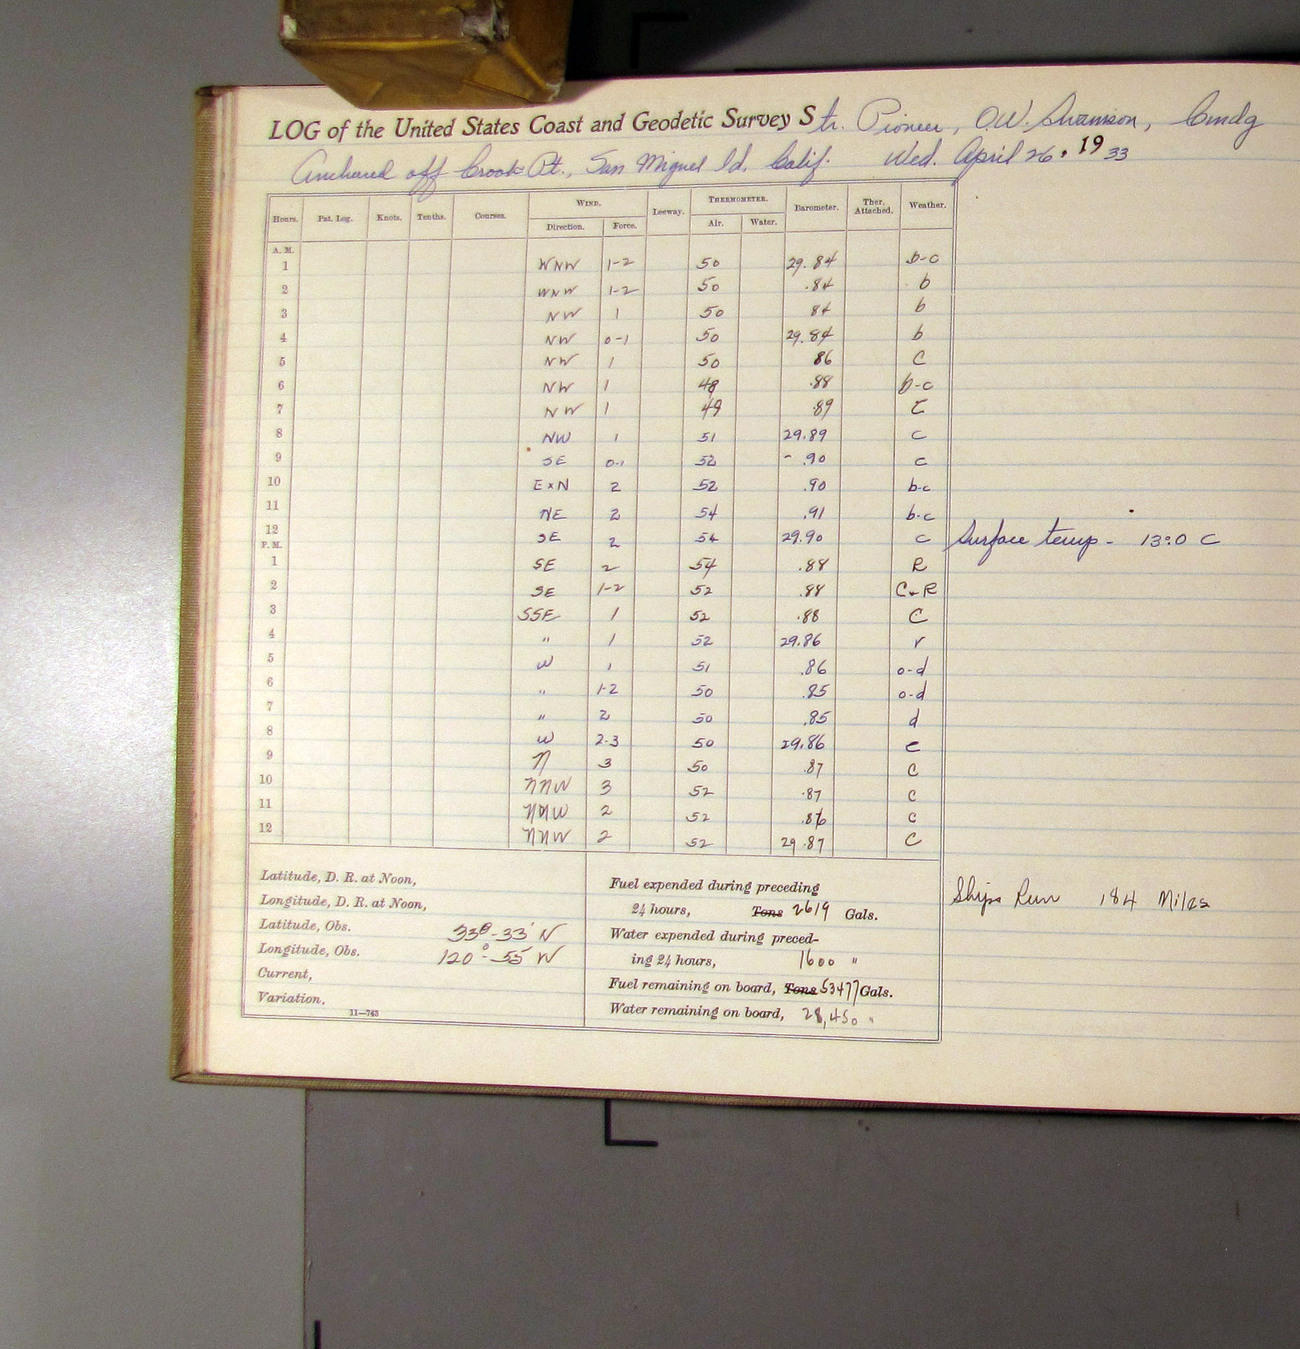 LOG of the United States Coast and Geodetic Survey Str. Pioneer, O.W. Swainson, Cmdg
Anchored off Crook Pt., San Miguel Id. Calif. Wed. April 26, 1933
Hours. Pat. Log. Knots. Tenths. Courses. WIND. Leeway. THERMOMETER. Barometer. Ther. Attached. Weather.
Direction. Force. Air. Water.
A. M.
1 WNW 1-2 50 29.84 b-c
2 WNW 1-2 50 .84 b
3 NW 1 50 84 b
4 NW 0-1 50 29.84 b
5 NW 1 50 86 C
6 NW 1 48 .88 b-c
7 NW 1 49 .89 C
8 NW 1 51 29.89 C
9 SE 0-1 52 - .90 C
10 ExN 2 52 .90 b-c
11 NE 2 54 .91 b-c
12 SE 2 54 29.90 C Surface temp - 13°.0 C
P. M.
1 SE 2 54 .88 R
2 SE 1-2 52 .88 C+R
3 SSE 1 52 .88 C
4 " 1 52 29.86 r
5 W 1 51 .86 o-d
6 " 1-2 50 .85 o-d
7 " 2 50 .85 d
8 W 2-3 50 29.86 c
9 N 3 50 .87 C
10 NNW 3 52 .87 C
11 NNW 2 52 .86 C
12 NNW 2 52 29.87 C
Latitude, D. R. at Noon,
Longitude, D. R. at Noon,
Latitude, Obs. 33°-33' N
Longitude, Obs. 120°-55 W
Current,
Variation.
11—763
Fuel expended during preceding
24 hours, Tons 2619 Gals.
Water expended during preced-
ing 24 hours, 1600 "
Fuel remaining on board, Tons 53477 Gals.
Water remaining on board, 28,450 "
Ships Run 184 Miles